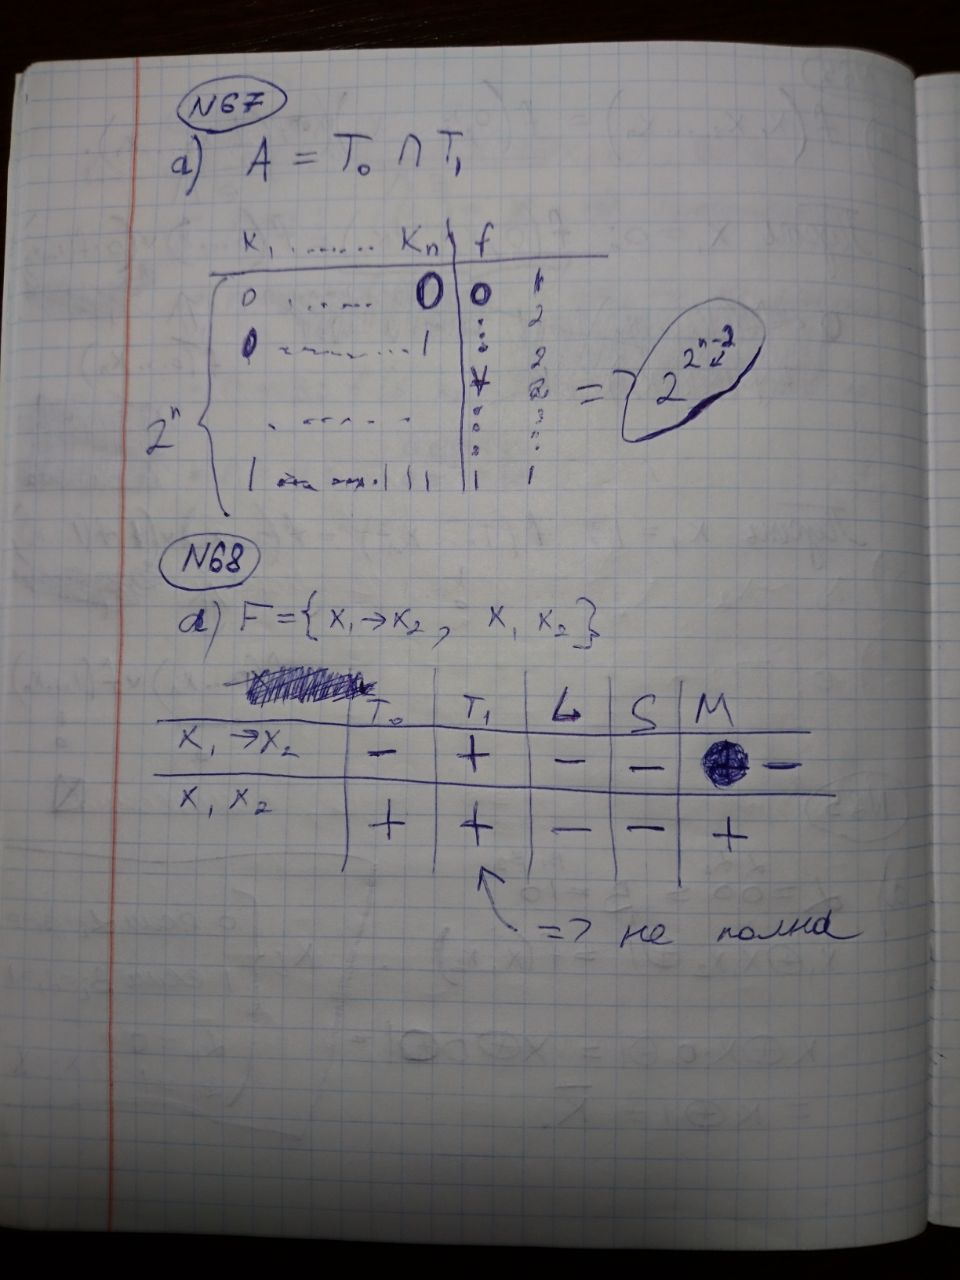 N67
a) A = T₀ ∩ T₁
x₁ ....... xₙ | f
0 ....... 0 | 0 1
2
0 ....... 1 2
* 2
2ⁿ ....... => 2^(2ⁿ-2)
1 ....... 1 1 1 | 1 1
N68
a) F = {x₁→x₂, x₁ x₂}
T₀ T₁ L S M
x₁→x₂ − + − − −
x₁ x₂ + + − − +
=> не полна